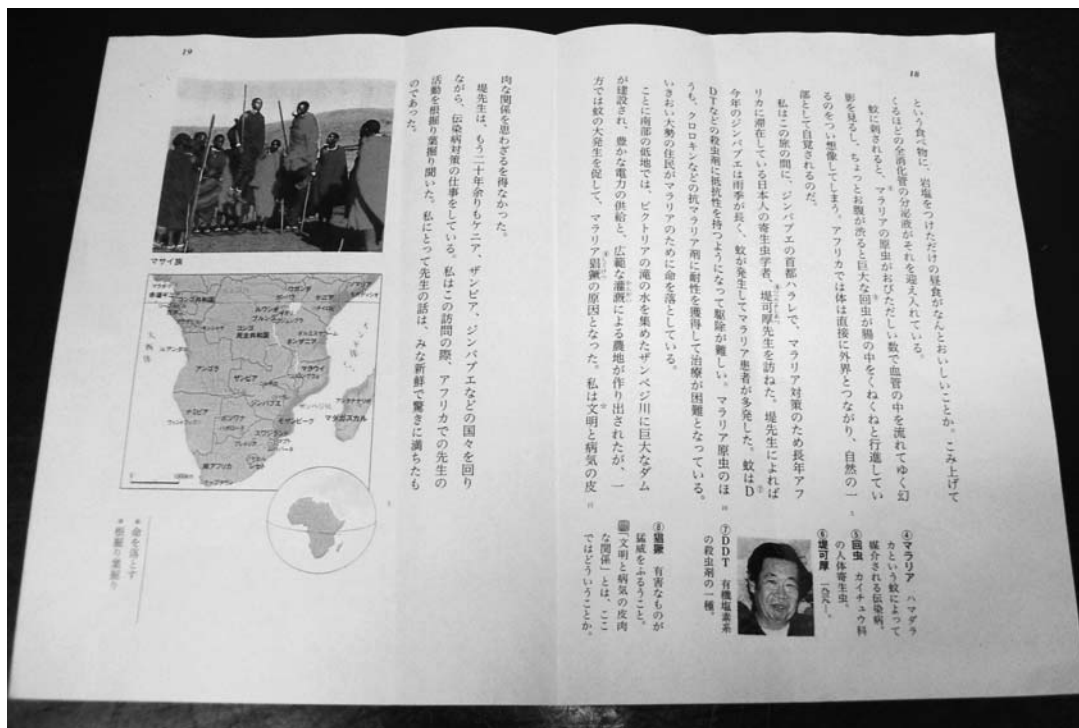 18
という食べ物に、岩塩をつけただけの昼食がなんとおいしいことか。こみ上げて
くるほどの全消化管の分泌液がそれを迎え入れている。
蚊に刺されると、マラリアの原虫がおびただしい数で血管の中を流れてゆく幻
影を見るし、ちょっとお腹が渋ると巨大な回虫が腸の中をくねくねと行進してい
るのをつい想像してしまう。アフリカでは体は直接に外界とつながり、自然の一
部として自覚されるのだ。
私はこの旅の間に、ジンバブエの首都ハラレで、マラリア対策のため長年アフ
リカに滞在している日本人の寄生虫学者、堤可厚先生を訪ねた。堤先生によれば
今年のジンバブエは雨季が長く、蚊が発生してマラリア患者が多発した。蚊はD
DTなどの殺虫剤に抵抗性を持つようになって駆除が難しい。マラリア原虫のほ
うも、クロロキンなどの抗マラリア剤に耐性を獲得して治療が困難となっている。
いきおい大勢の住民がマラリアのために命を落としている。
ことに南部の低地では、ビクトリアの滝の水を集めたザンベジ川に巨大なダム
が建設され、豊かな電力の供給と、広範な灌漑による農地が作り出されたが、一
方では蚊の大発生を促して、マラリア猖獗の原因となった。私は文明と病気の皮
④マラリア ハマダラ
カという蚊によって
媒介される伝染病。
⑤回虫 カイチュウ科
の人体寄生虫。
⑥堤可厚
⑦DDT 有機塩素系
の殺虫剤の一種。
⑧猖獗 有害なものが
猛威をふるうこと。
「文明と病気の皮肉
な関係」とは、ここ
ではどういうことか。
19
肉な関係を思わざるを得なかった。
堤先生は、もう二十年余りもケニア、ザンビア、ジンバブエなどの国々を回り
ながら、伝染病対策の仕事をしている。私はこの訪問の際、アフリカでの先生の
活動を根掘り葉掘り聞いた。私にとって先生の話は、みな新鮮で驚きに満ちたも
のであった。
マサイ族
ウガンダ
ケニア
ソマリア
コンゴ共和国
ルワンダ
ブルンジ
コンゴ
民主共和国
タンザニア
アンゴラ
ザンビア
マラウイ
ジンバブエ
モザンビーク
マダガスカル
ナミビア
ボツワナ
スワジランド
レソト
南アフリカ
ケープタウン
命を落とす
根掘り葉掘り